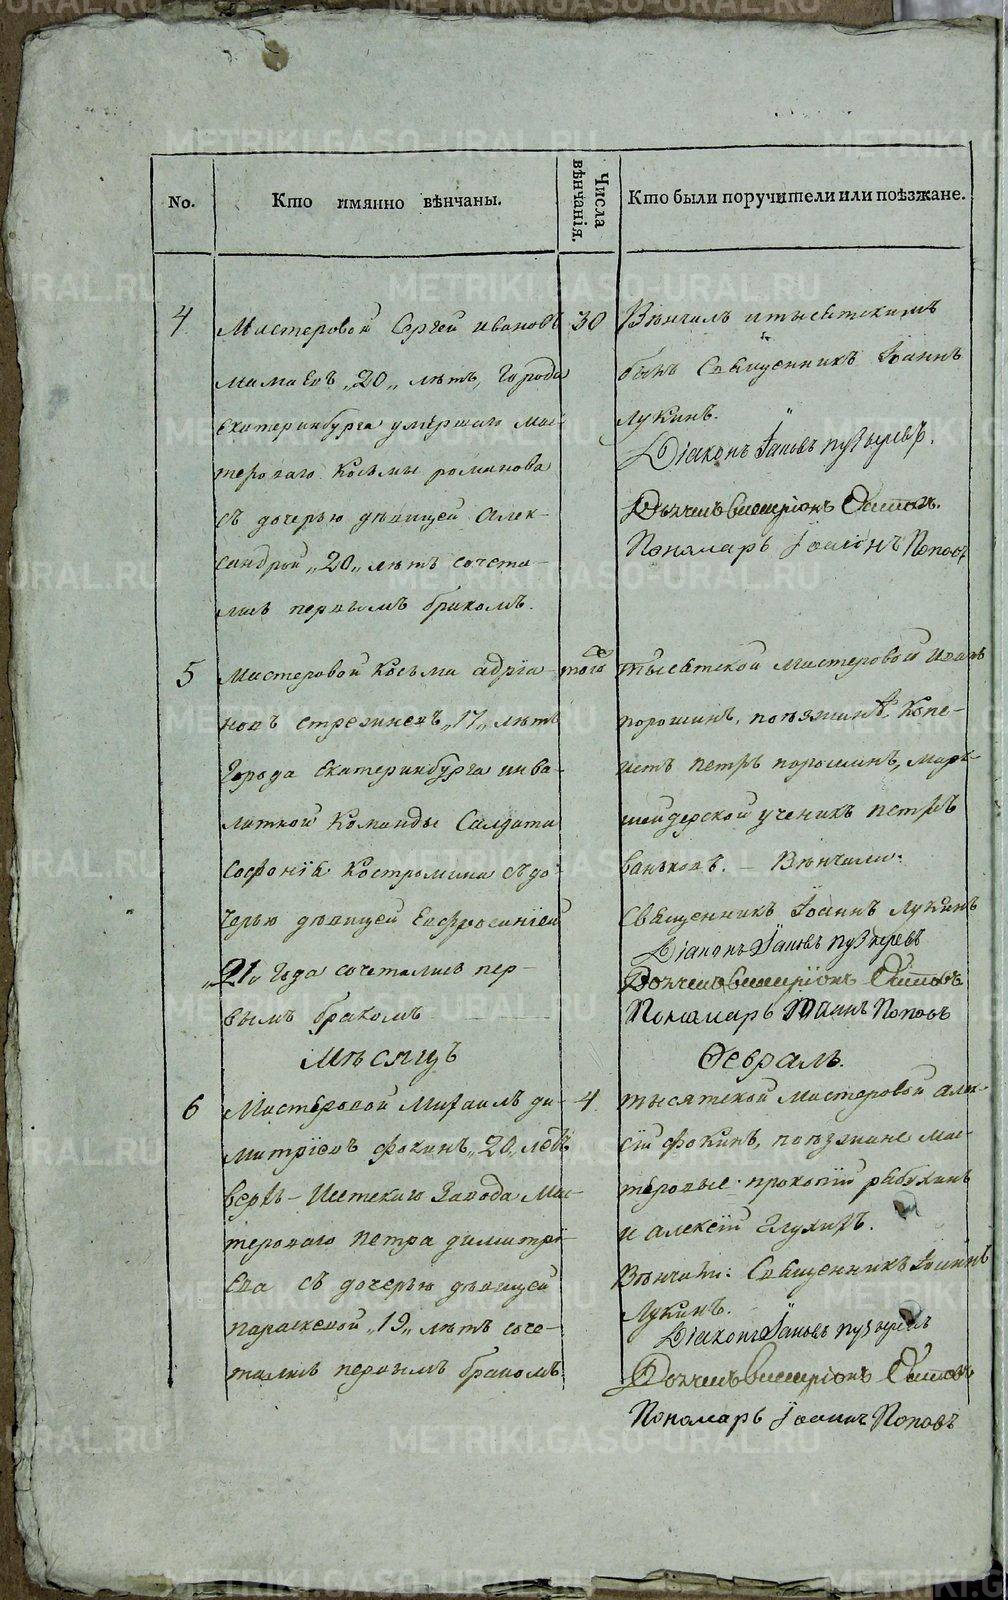 No.
Кто имянно вѣнчаны.
Числа вѣнчанія.
Кто были поручители или поѣзжане.
4
Мастеровой Сергей ивановъ
мамаевъ „20„ лѣтъ, Города
екатеринбурга умершаго мас-
тероваго козьмы романова
съ дочерью дѣвицей алек-
сандрой „20„ лѣтъ сочета-
лись первымъ бракомъ.
30
Вѣнчалъ и тысятскимъ
былъ Священникъ Іоаннъ
лукинъ.
Діаконъ Іаковъ пузыревъ.
Дьячекъ виссаріонъ
Пономарь Іоаннъ Поповъ
5
мастеровой козьма адріа-
новъ „17„ лѣтъ
города екатеринбурга инва-
лидной команды Салдата
Софонія костромина съ до-
черью дѣвицей Евфросиніей
„21„ года сочетались пер-
вымъ бракомъ
того
тысятской мастеровой иванъ
порошинъ, поѣзжанѣ, копе-
истъ петръ порошинъ, марк-
шейдерской ученикъ петръ
ваньковъ. – Вѣнчали:
Священникъ Іоаннъ лукинъ
Діаконъ Іаковъ пузыревъ
Дьячекъ виссаріонъ
Пономарь Іоаннъ Поповъ
Мѣсяцъ
Февраль.
6
Мастеровой Михаилъ ди-
митріевъ фокинъ „20„ летъ
верхъ-Исетскаго Завода мас-
тероваго петра димитрі-
ева съ дочерью дѣвицей
параскевой „19„ лѣтъ соче-
тались первымъ бракомъ
4
тысятской мастеровой алек-
сій фокинъ, поѣзжане мас-
теровые: прокопій рябухинъ
и алексій глухихъ.
Вѣнчали: Священникъ Іоаннъ
Лукинъ.
Діаконъ Іаковъ пузыревъ
Дьячекъ виссаріонъ
Пономарь Іоаннъ Поповъ
METRIKI.GASO-URAL.RU